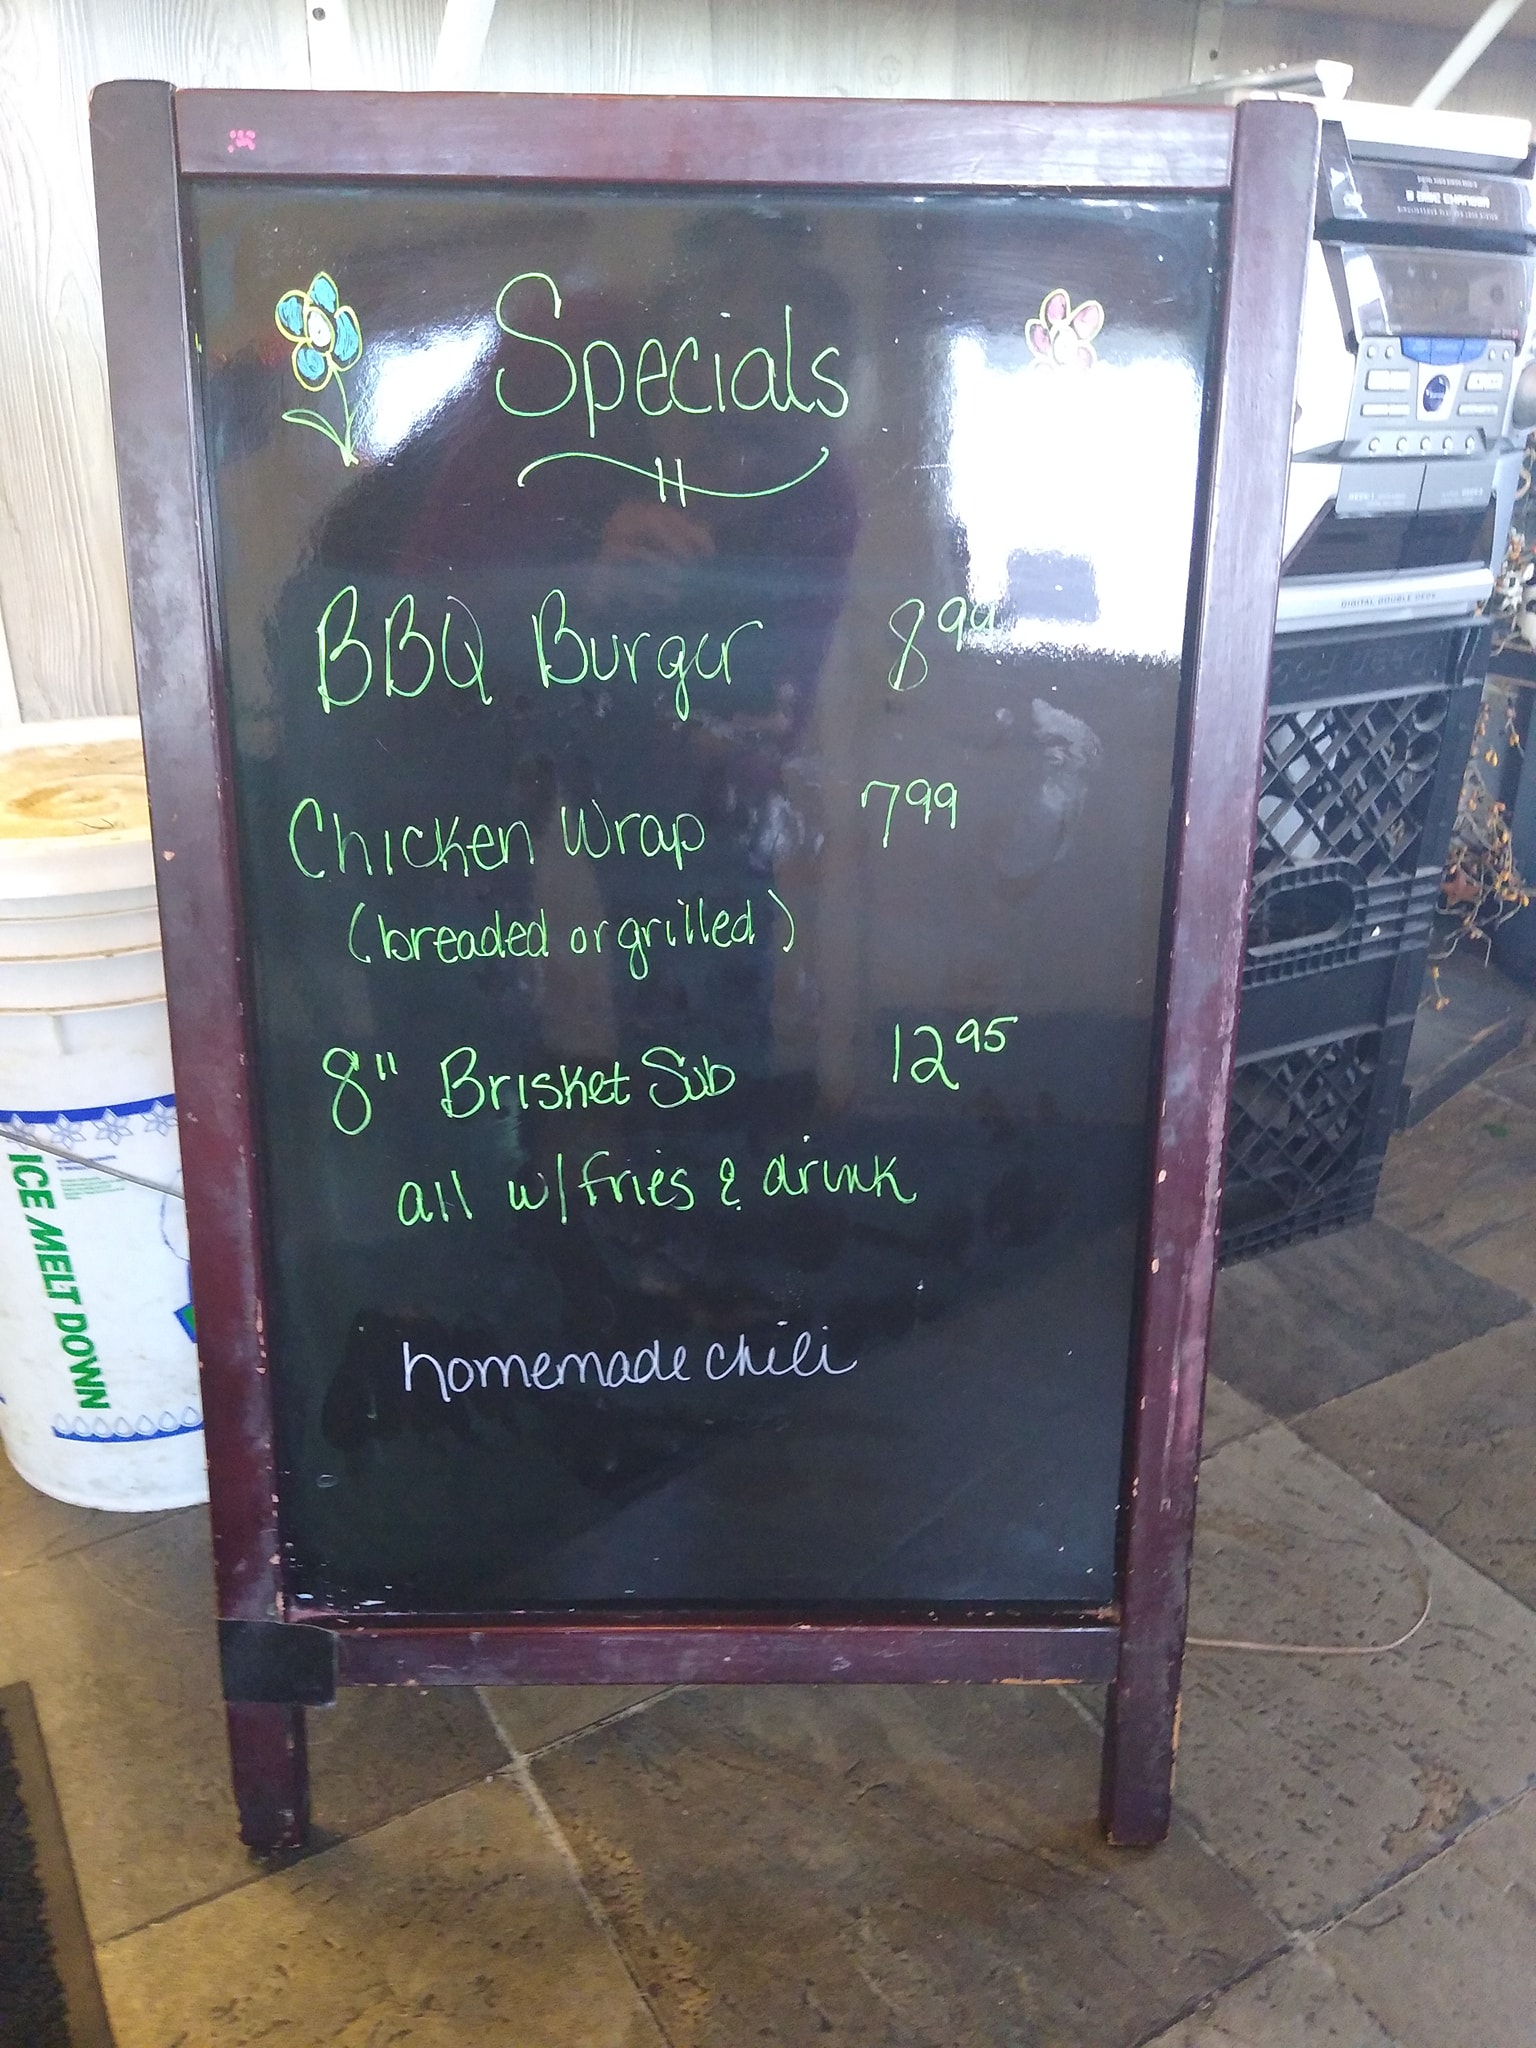 Specials
BBQ Burger 8 99
Chicken Wrap 7 99
(breaded or grilled)
8" Brisket Sub 12 95
all w/fries & drink
homemade chili
ICE MELT DOWN
DIGITAL DOUBLE DECK